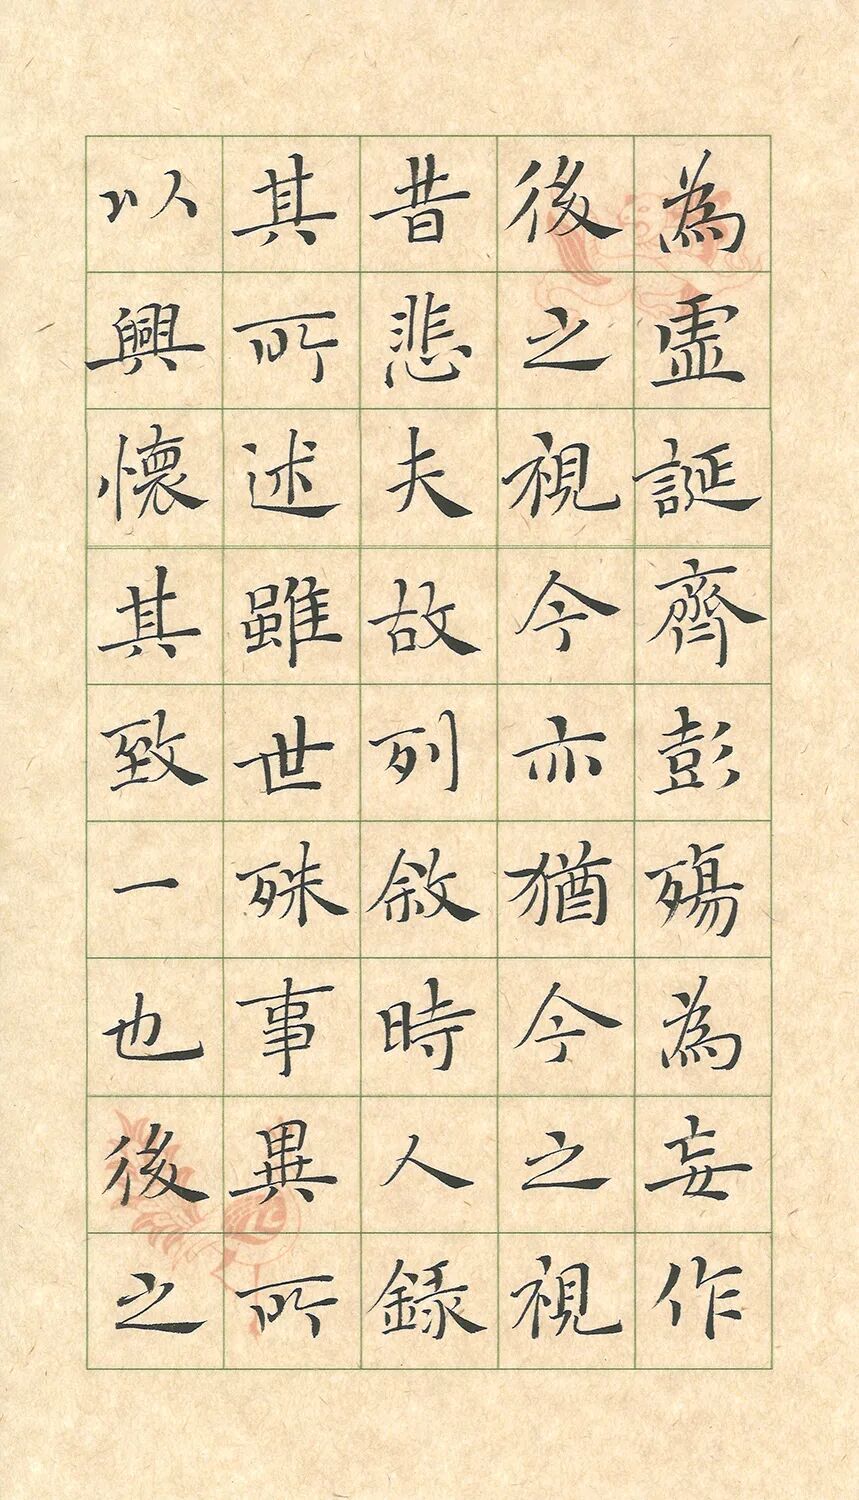 為虛誕齊彭殤為妄作
後之視今亦猶今之視
昔悲夫故列敘時人錄
其所述雖世殊事異所
以興懷其致一也後之